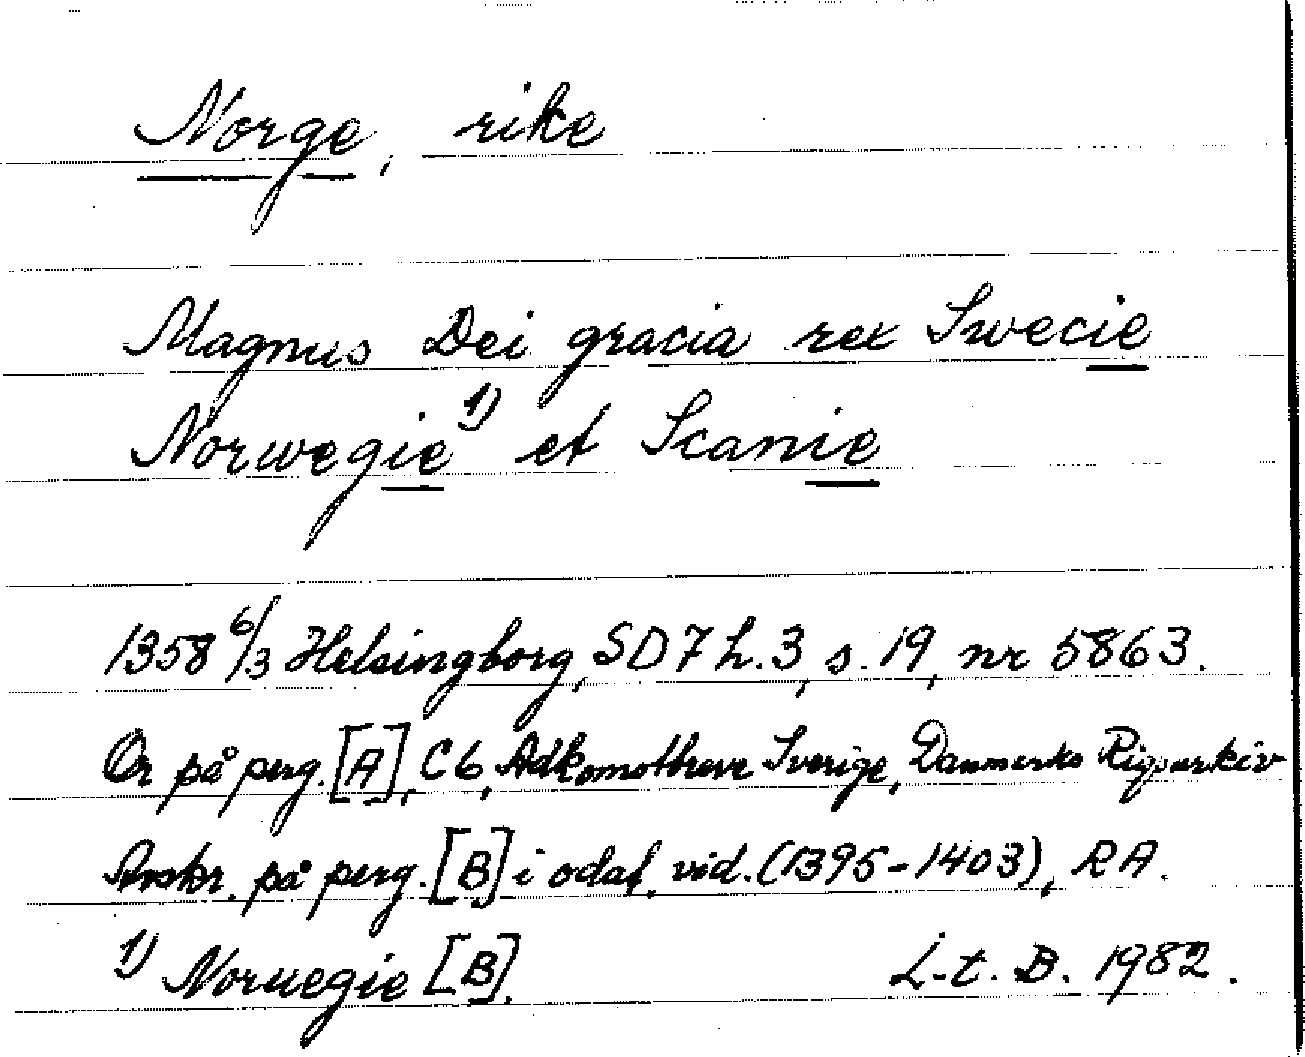 Norge, rike
Magnus Dei gracia rex Swecie
Norwegie 1) et Scanie
1358 6/3 Helsingborg, SD 7 h. 3, s. 19, nr 5863.
Or på perg. [A], C6, Adkomstbreve Sverige, Danmarks Rigsarkiv
Avskr. på perg. [B] i odat. vid. (1395-1403), RA.
1) Noruegie [B]. L-t. B. 1982.